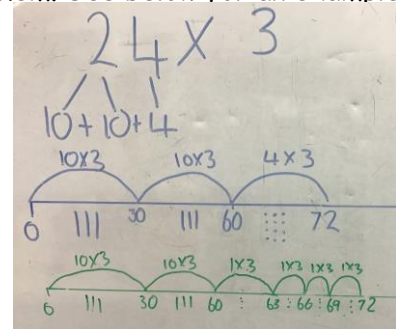 24 x 3
10+10+4
10x3 10x3 4x3
0 111 30 111 60 72
10x3 10x3 1x3 1x3 1x3 1x3
0 111 30 111 60 63 66 69 72